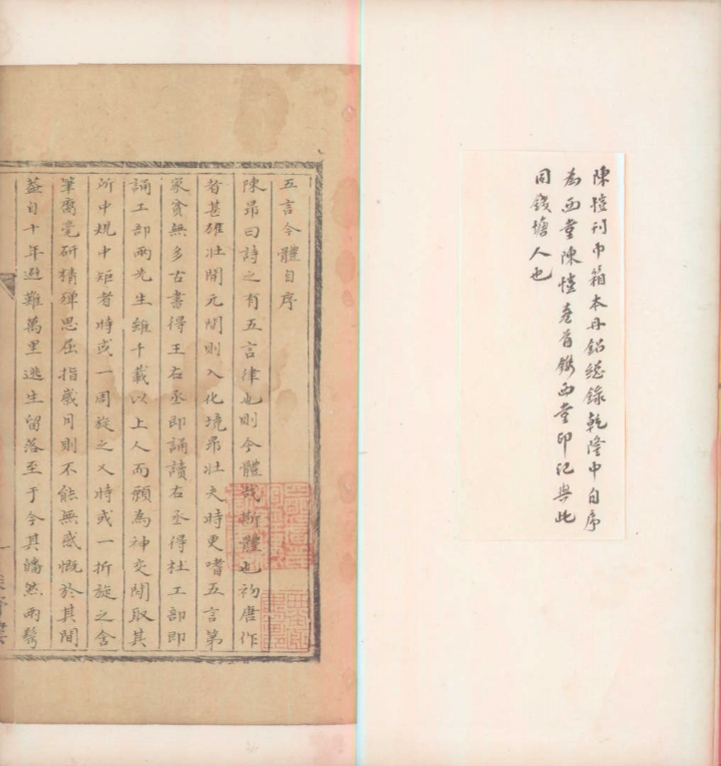 陳愷刊巾箱本丹鉛總錄乾隆中自序
為西堂陳愷卷首鐫西堂印記與此
同錢塘人也
五言今體自序
陳昂曰詩之有五言律也則今體哉斯體也初唐作
者甚雄壯開元間則入化境昂壯夫時更嗜五言第
家貧無多古書得王右丞即誦讀右丞得杜工部即
誦工部兩先生雖千載以上人而願為神交間取其
所中規中矩者時或一周旋之又時或一折旋之含
筆腐毫研精殫思屈指歲月則不能無感慨於其間
蓋自十年避難萬里逃生留落至于今其皤然兩鬢